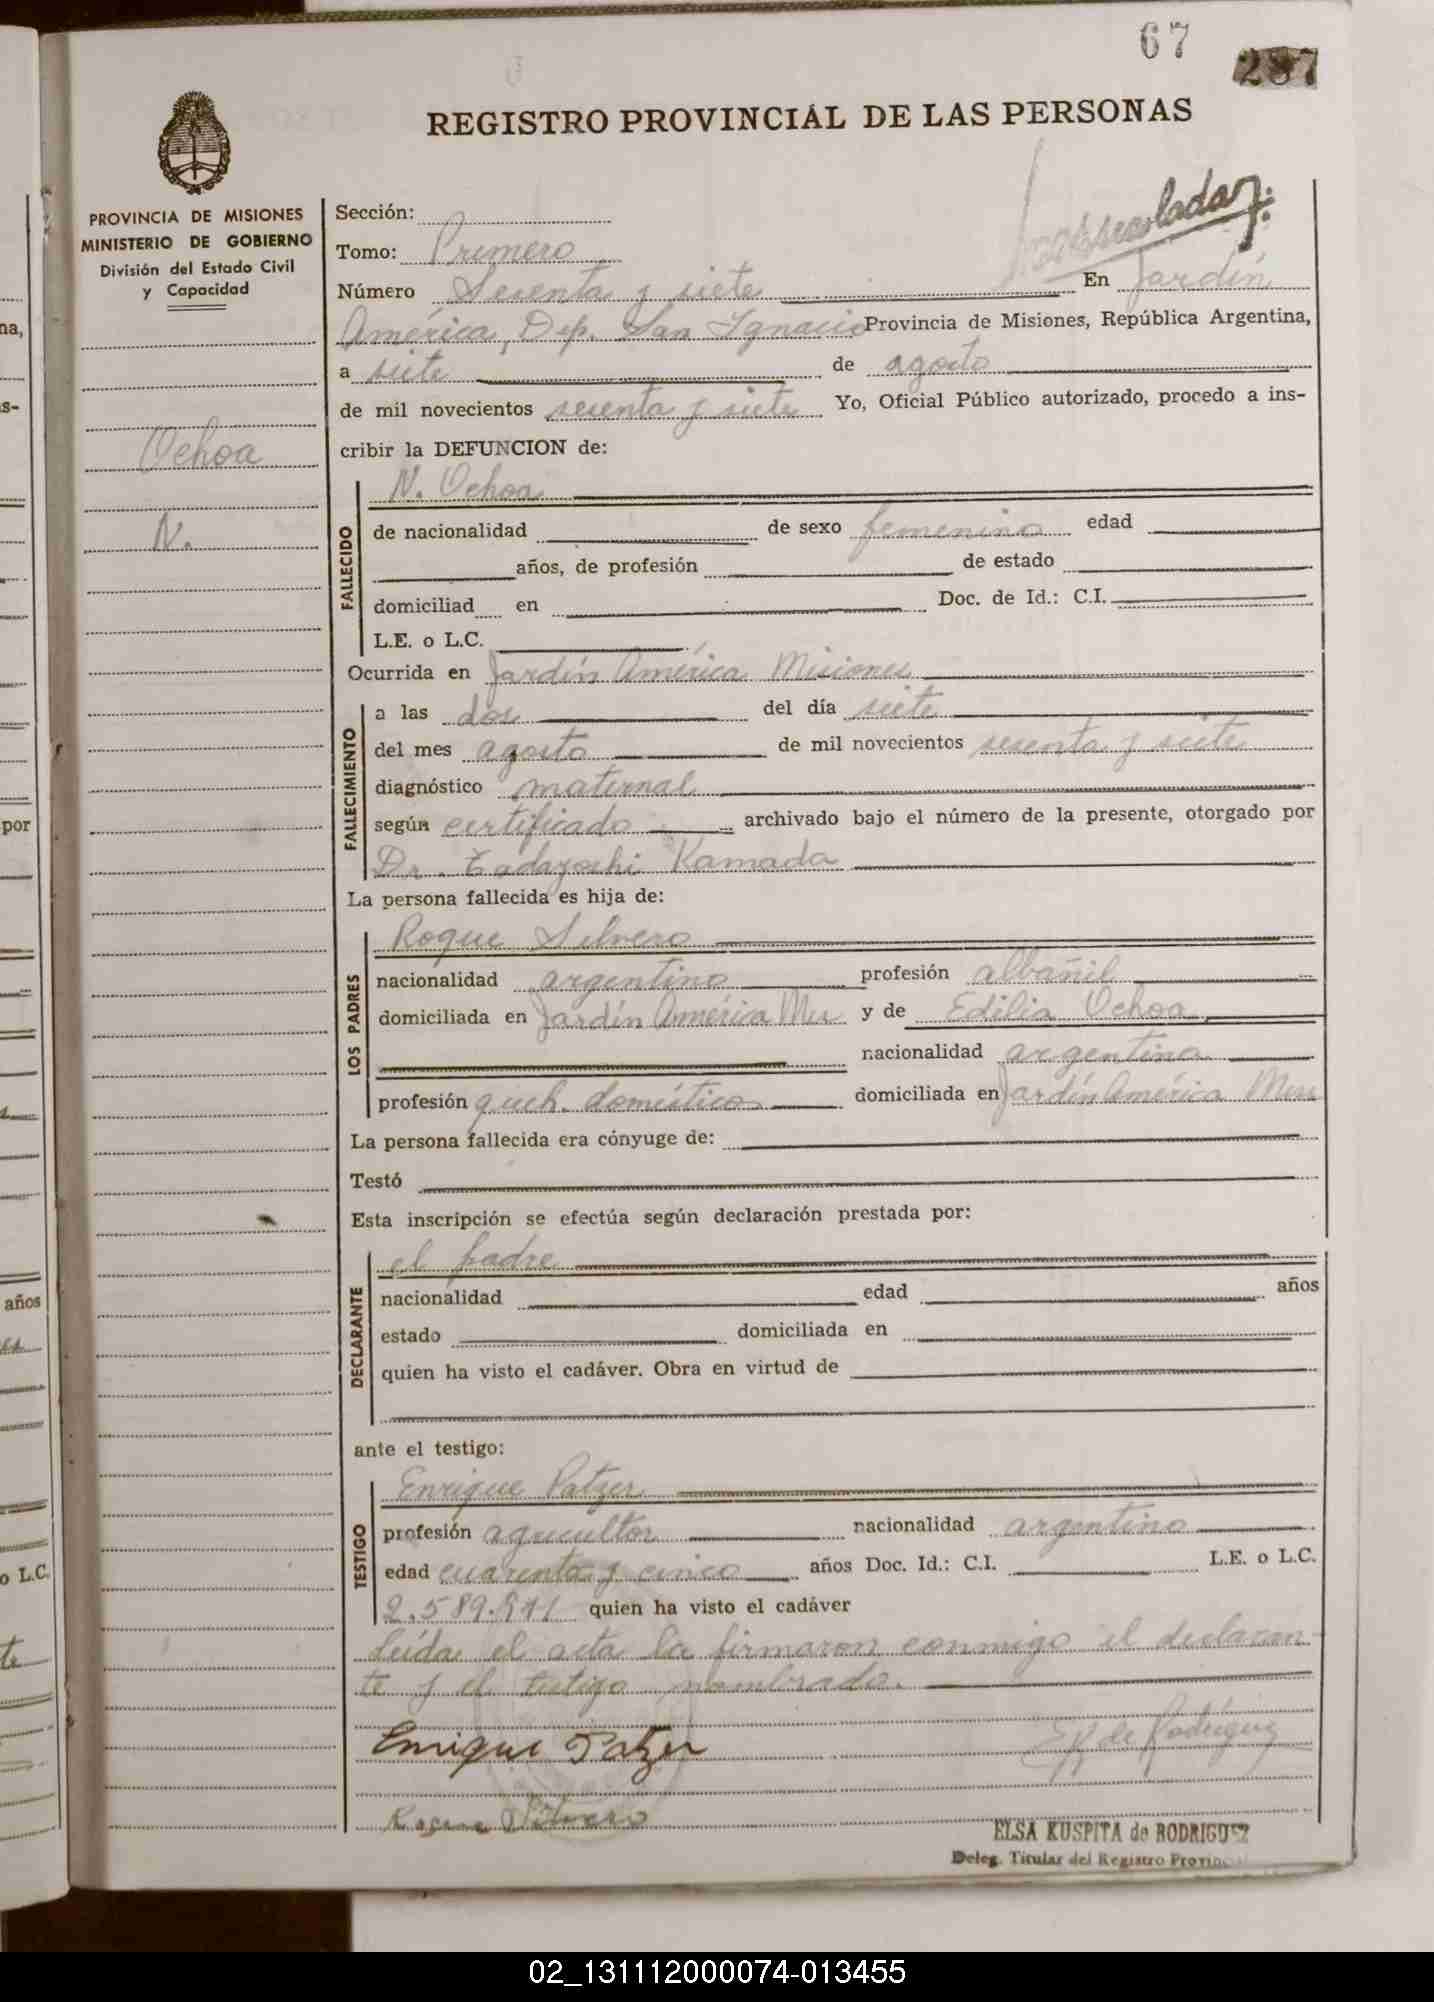 67
287
REGISTRO PROVINCIAL DE LAS PERSONAS
PROVINCIA DE MISIONES
MINISTERIO DE GOBIERNO
División del Estado Civil
y Capacidad
Ochoa
N.
Sección:
Tomo: Primero
Número Sesenta y siete En Jardín
América, Dep. San Ignacio Provincia de Misiones, República Argentina,
a siete de agosto
de mil novecientos sesenta y siete Yo, Oficial Público autorizado, procedo a ins-
cribir la DEFUNCION de:
FALLECIDO
N. Ochoa
de nacionalidad de sexo femenino edad
años, de profesión de estado
domiciliad en Doc. de Id.: C.I.
L.E. o L.C.
Ocurrida en Jardín América Misiones
FALLECIMIENTO
a las dos del día siete
del mes agosto de mil novecientos sesenta y siete
diagnóstico maternal
según certificado archivado bajo el número de la presente, otorgado por
Dr. Tadayoshi Kamada
La persona fallecida es hija de:
LOS PADRES
Roque Silvero
nacionalidad argentino profesión albañil
domiciliada en Jardín América Mis y de Edilia Ochoa
nacionalidad argentina
profesión queh. domésticos domiciliada en Jardín América Mnes
La persona fallecida era cónyuge de:
Testó
Esta inscripción se efectúa según declaración prestada por:
DECLARANTE
el padre
nacionalidad edad años
estado domiciliada en
quien ha visto el cadáver. Obra en virtud de
ante el testigo:
TESTIGO
Enrique Patzer
profesión agricultor nacionalidad argentino
edad cuarenta y cinco años Doc. Id.: C.I. L.E. o L.C.
quien ha visto el cadáver
Leída el acta la firmaron conmigo el declaran-
te y el testigo nombrado.
Enrique Patzer
E K de Rodriguez
Roque Silvero
ELSA KUSPITA de RODRIGUEZ
Deleg. Titular del Registro Provinc
na,
s-
por
años
o L.C.
te
02_131112000074-013455